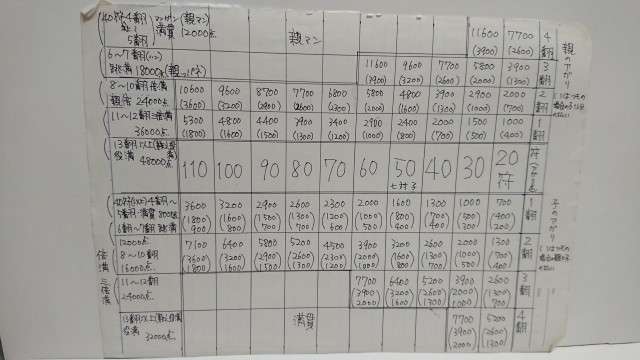 40符・4翻 マンガン(親マン)
満貫
5翻 12000点
親マン
11600 7700 4翻
(3900) (2600)
親のアガリ
6〜7翻
跳満 18000点(親ッパネ)
11600 9600 7700 5800 3900 3翻
(3900) (3200) (2600) (2000) (1300)
8〜10翻 倍満
親倍 24000点
10600 9600 8700 7700 6800 5800 4800 3900 2900 2000 2翻
(3600) (3200) (2900) (2600) (2300) (2000) (1600) (1300) (1000) (700)
11〜12翻 三倍満
36000点
5300 4800 4400 3900 3400 2900 2400 2000 1500 1000 1翻
(1800) (1600) (1500) (1300) (1200) (1000) (800) (700) (500) (400)
13翻以上
役満 48000点
110 100 90 80 70 60 50 40 30 20符
七対子
子のアガリ
4翻〜
5翻 満貫 8000点
6翻〜7翻 跳満
12000点
3600 3200 2900 2600 2300 2000 1600 1300 1000 700 1翻
(1800) (1600) (1500) (1300) (1200) (1000) (800) (700) (500) (400)
900 800 700 700 600 500 400 400 300 200
倍満
8〜10翻
16000点
7100 6400 5800 5200 4500 3900 3200 2600 2000 1300 2翻
(3600) (3200) (2900) (2600) (2300) (2000) (1600) (1300) (1000) (700)
1800 1600 1500 1300 1200 1000 800 700 500 400
三倍満
11〜12翻
24000点
7700 6400 5200 3900 2600 3翻
(3900) (3200) (2600) (2000) (1300)
2000 1600 1300 1000 700
13翻以上
役満 32000点
満貫
7700 5200 4翻
(3900) (2600)
2000 1300